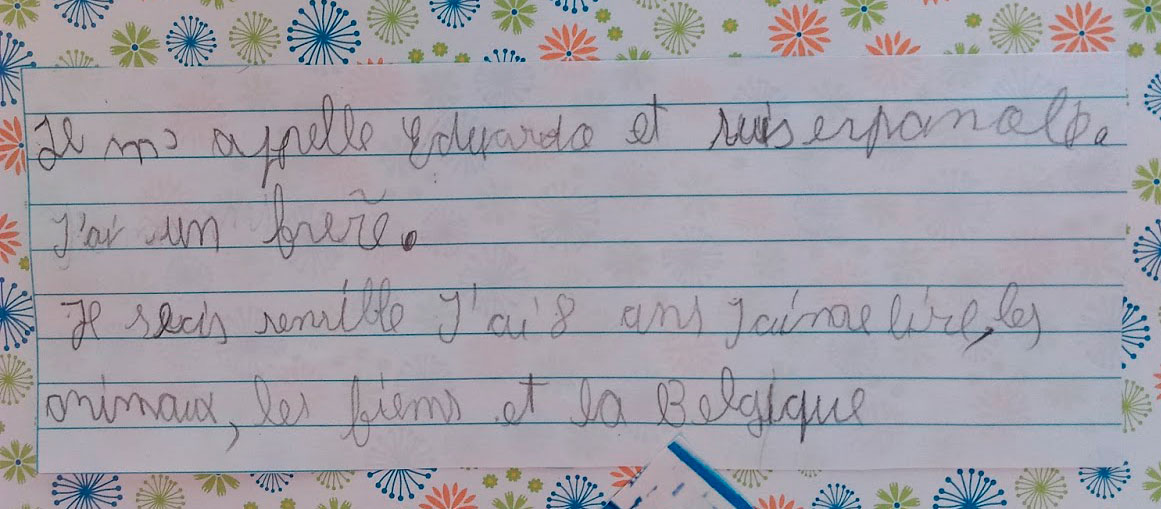 Je m' appelle Eduardo et suis espanole.
J'ai un frère.
Je suis sensible J'ai 8 ans J'aime lire, les
animaux, les et la Belgique